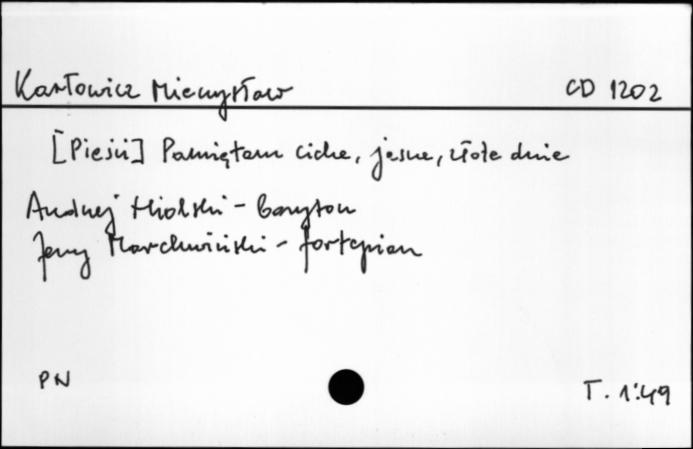 Karłowicz Mieczysław CD 1202
[Pieśń] Pamiętam ciche, jasne, złote dnie
Andrzej Hiolski - baryton
Jerzy Marchwiński - fortepian
PN T. 1:49